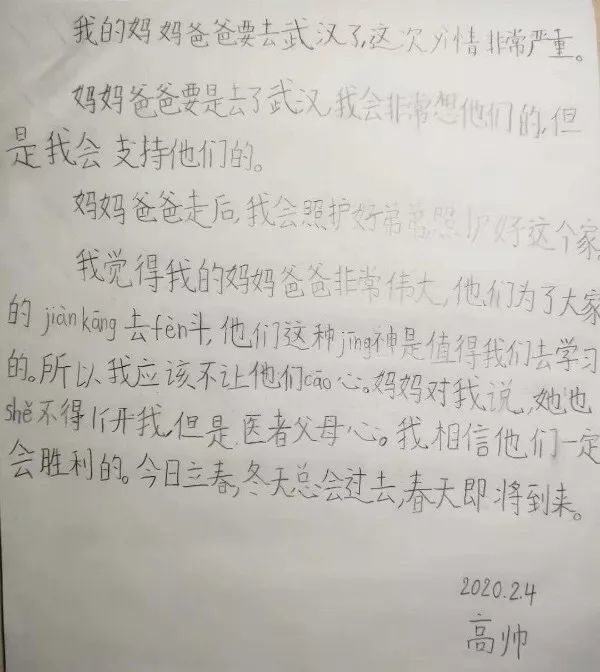 我的妈妈爸爸要去武汉了,这次疒情非常严重。
妈妈爸爸要是去了武汉,我会非常想他们的,但
是我会支持他们的。
妈妈爸爸走后,我会照护好弟弟照护好这个家。
我觉得我的妈妈爸爸非常伟大,他们为了大家
的jiànkāng去fèn斗,他们这种jīng神是值得我们去学习
的。所以我应该不让他们cāo心。妈妈对我说,她也
shě不得开我,但是医者父母心。我相信他们一定
会胜利的。今日立春,冬天总会过去,春天即将到来。
2020.2.4
高帅